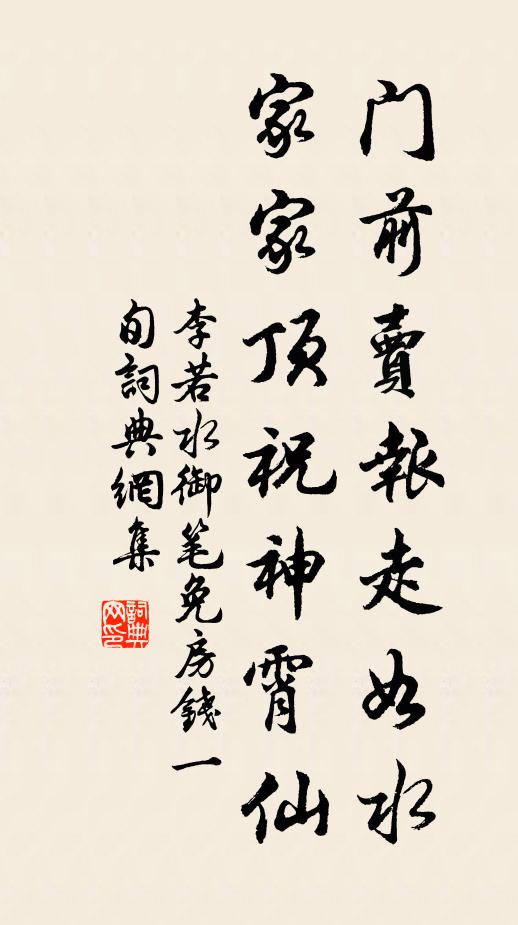 门前賣報走如水
家家頂祝神霄仙
李若水御笔免房錢一
旬詞典網集
詞典
网印